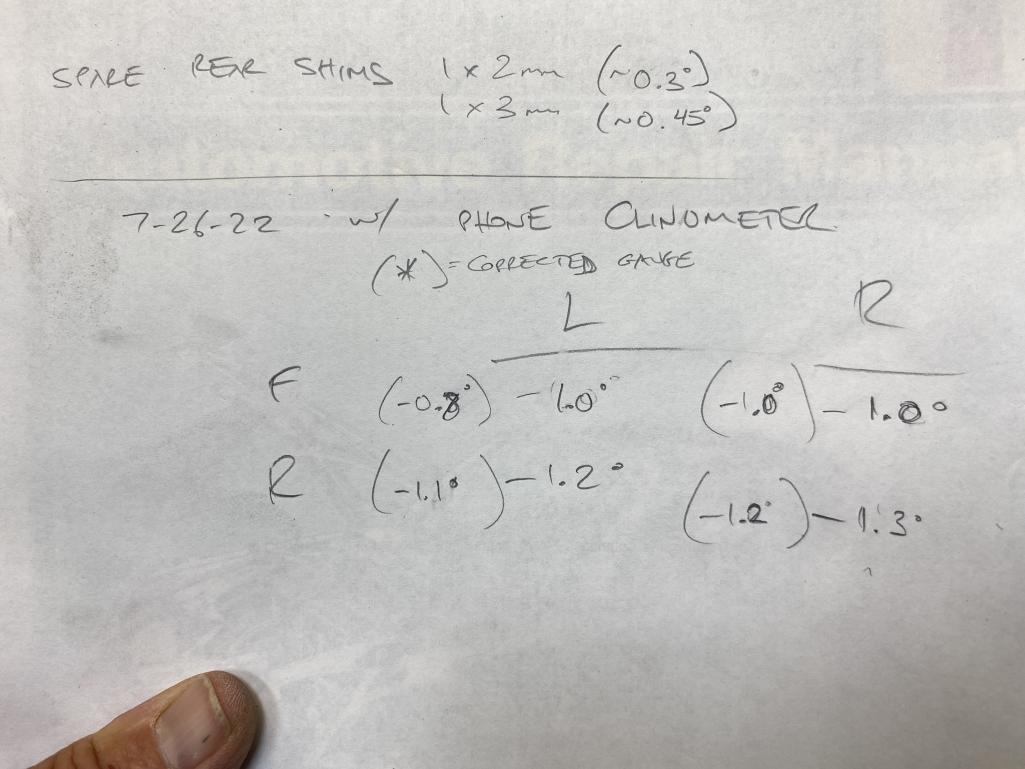 SPARE REAR SHIMS 1 x 2mm (~0.3°)
1 x 3mm (~0.45°)
7-26-22 w/ PHONE CLINOMETER
(*) = CORRECTED GAUGE
L R
F (-0.8°) -1.0° (-1.0°) -1.0°
R (-1.1°) -1.2° (-1.2°) -1.3°